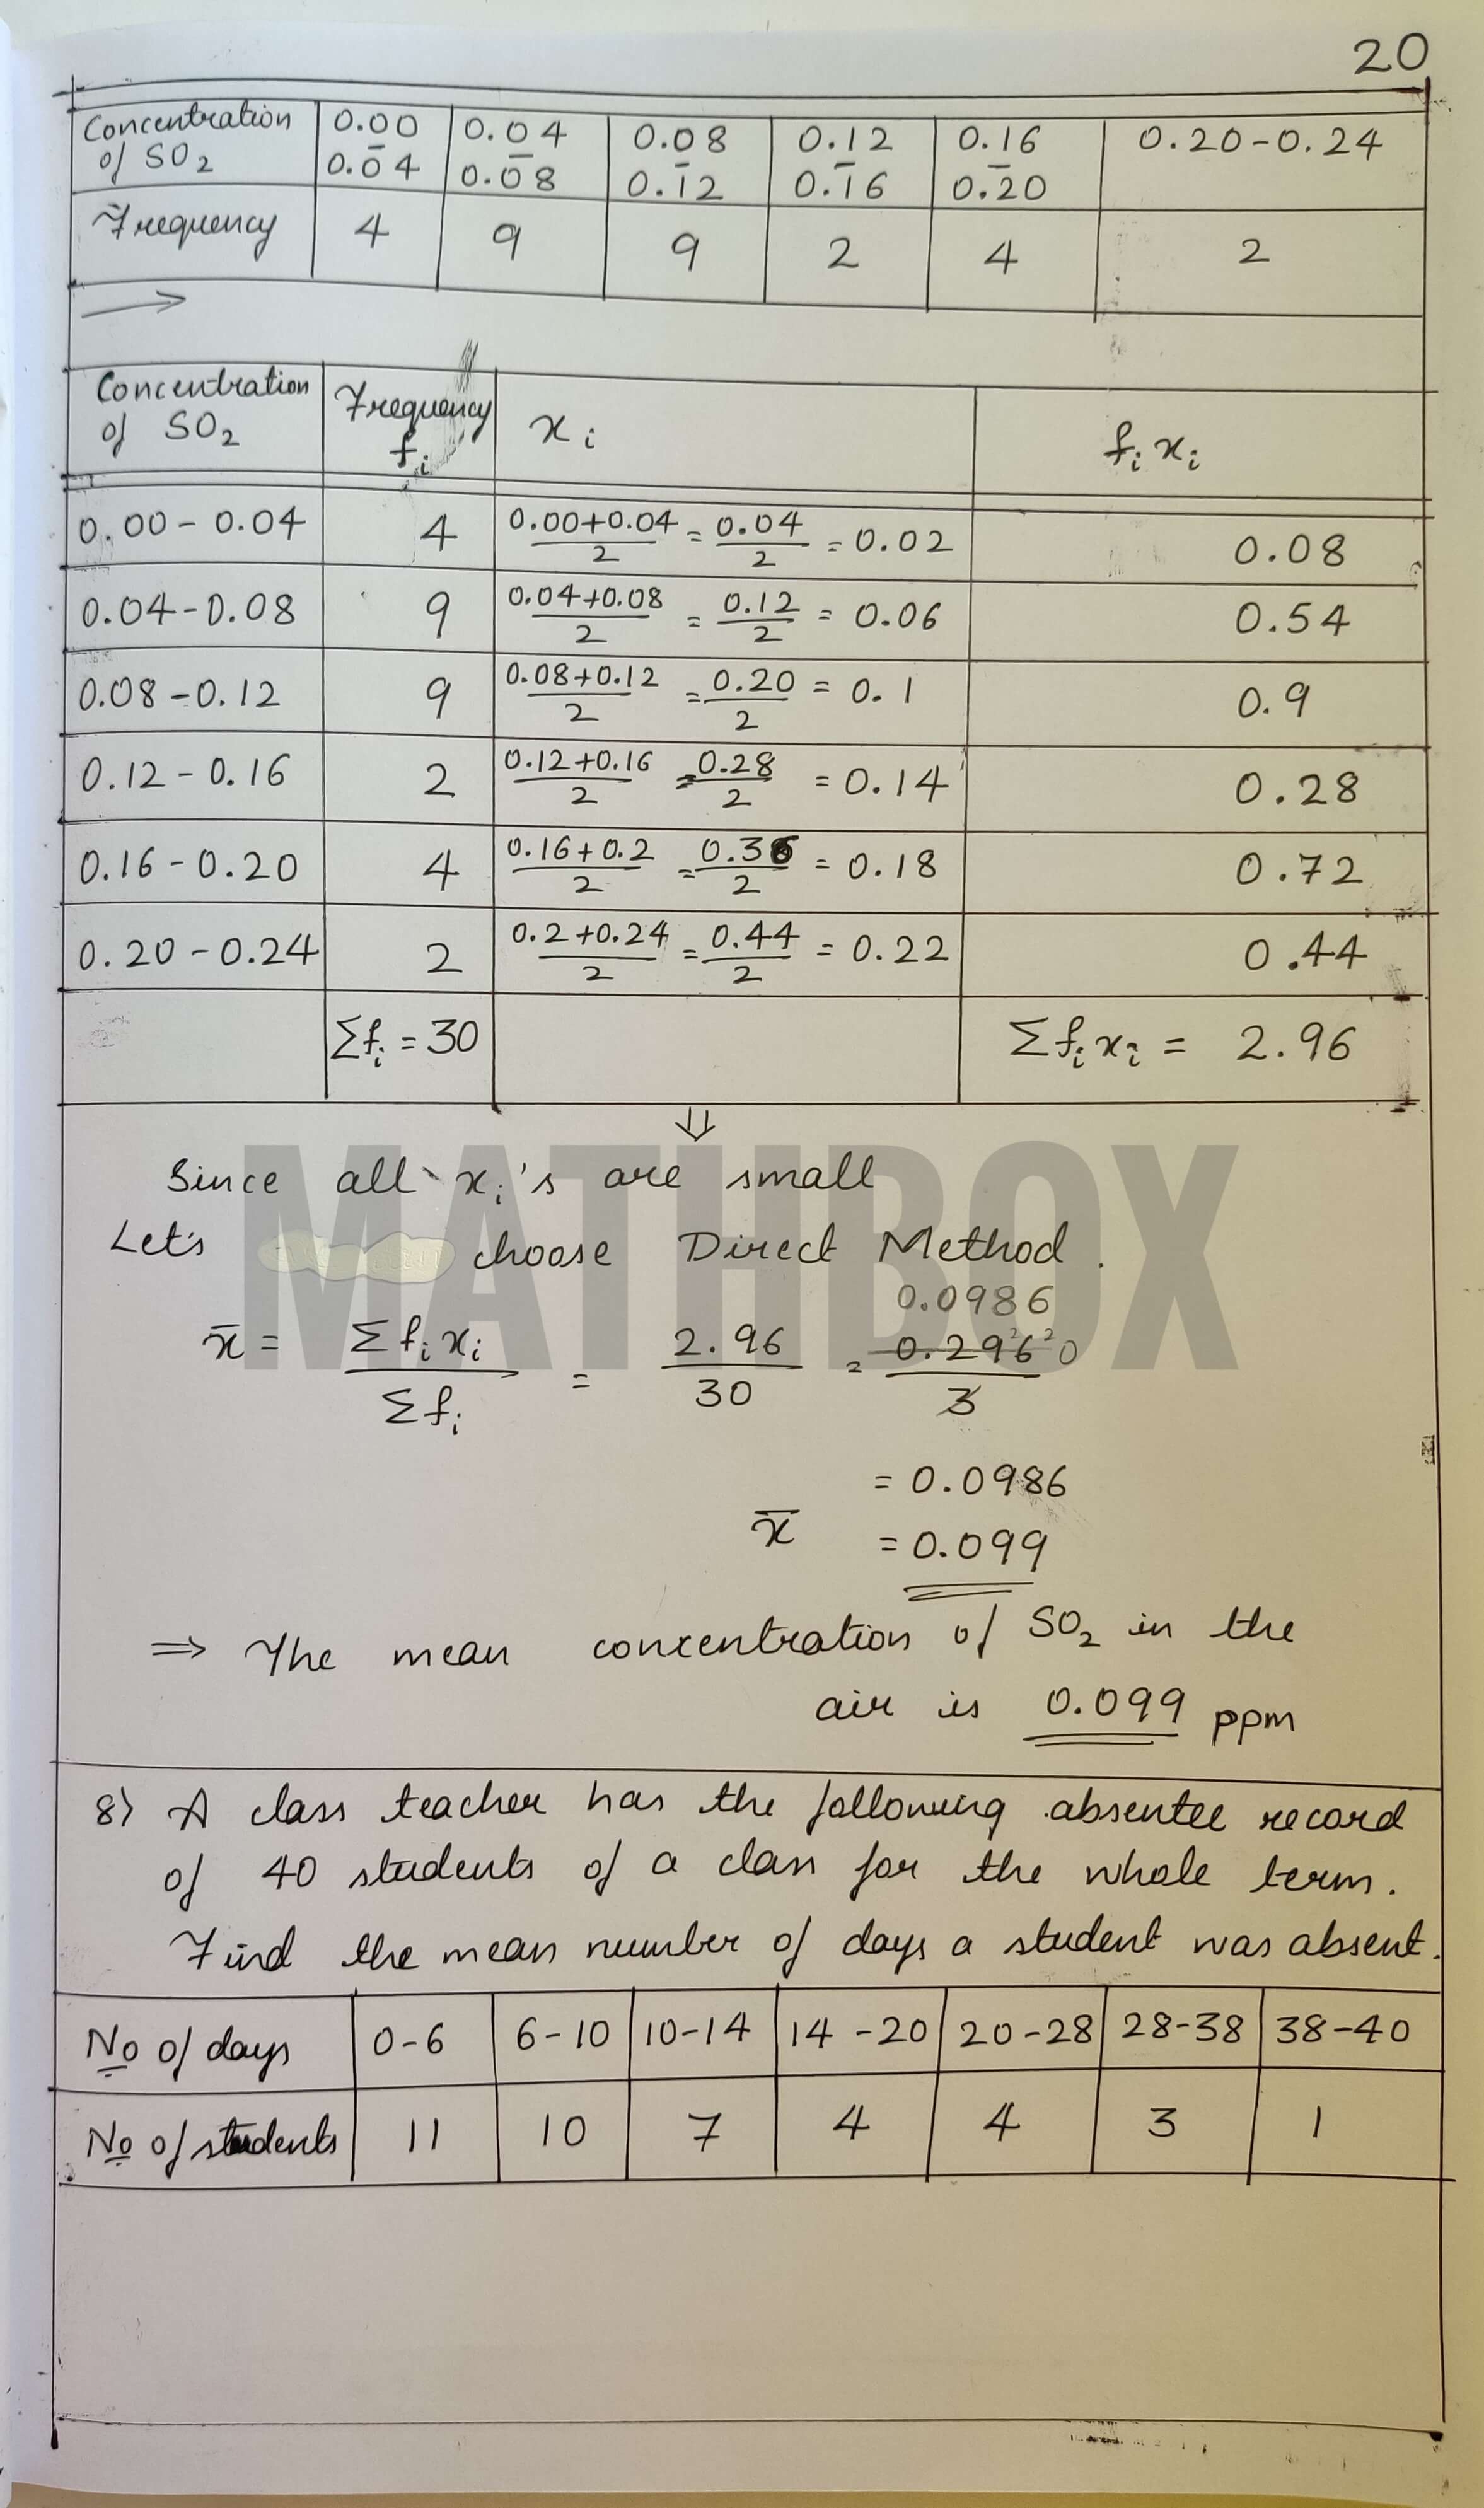 20
Concentration of SO2 | 0.00 - 0.04 | 0.04 - 0.08 | 0.08 - 0.12 | 0.12 - 0.16 | 0.16 - 0.20 | 0.20-0.24
Frequency | 4 | 9 | 9 | 2 | 4 | 2
→
Concentration of SO2 | Frequency fi | xi | fi xi
0.00 - 0.04 | 4 | 0.00+0.04/2 = 0.04/2 = 0.02 | 0.08
0.04-0.08 | 9 | 0.04+0.08/2 = 0.12/2 = 0.06 | 0.54
0.08-0.12 | 9 | 0.08+0.12/2 = 0.20/2 = 0.1 | 0.9
0.12-0.16 | 2 | 0.12+0.16/2 = 0.28/2 = 0.14 | 0.28
0.16-0.20 | 4 | 0.16+0.2/2 = 0.36/2 = 0.18 | 0.72
0.20-0.24 | 2 | 0.2+0.24/2 = 0.44/2 = 0.22 | 0.44
Σfi = 30 | Σfi xi = 2.96
⇓
MATHBOX
Since all xi's are small
Let's choose Direct Method.
0.0986
x̄ = Σfi xi / Σfi = 2.96/30 = 0.29²6²0/3
= 0.0986
x̄ = 0.099
⇒ The mean concentration of SO2 in the
air is 0.099 ppm
8) A class teacher has the following absentee record
of 40 students of a class for the whole term.
Find the mean number of days a student was absent.
No of days | 0-6 | 6-10 | 10-14 | 14-20 | 20-28 | 28-38 | 38-40
No of students | 11 | 10 | 7 | 4 | 4 | 3 | 1